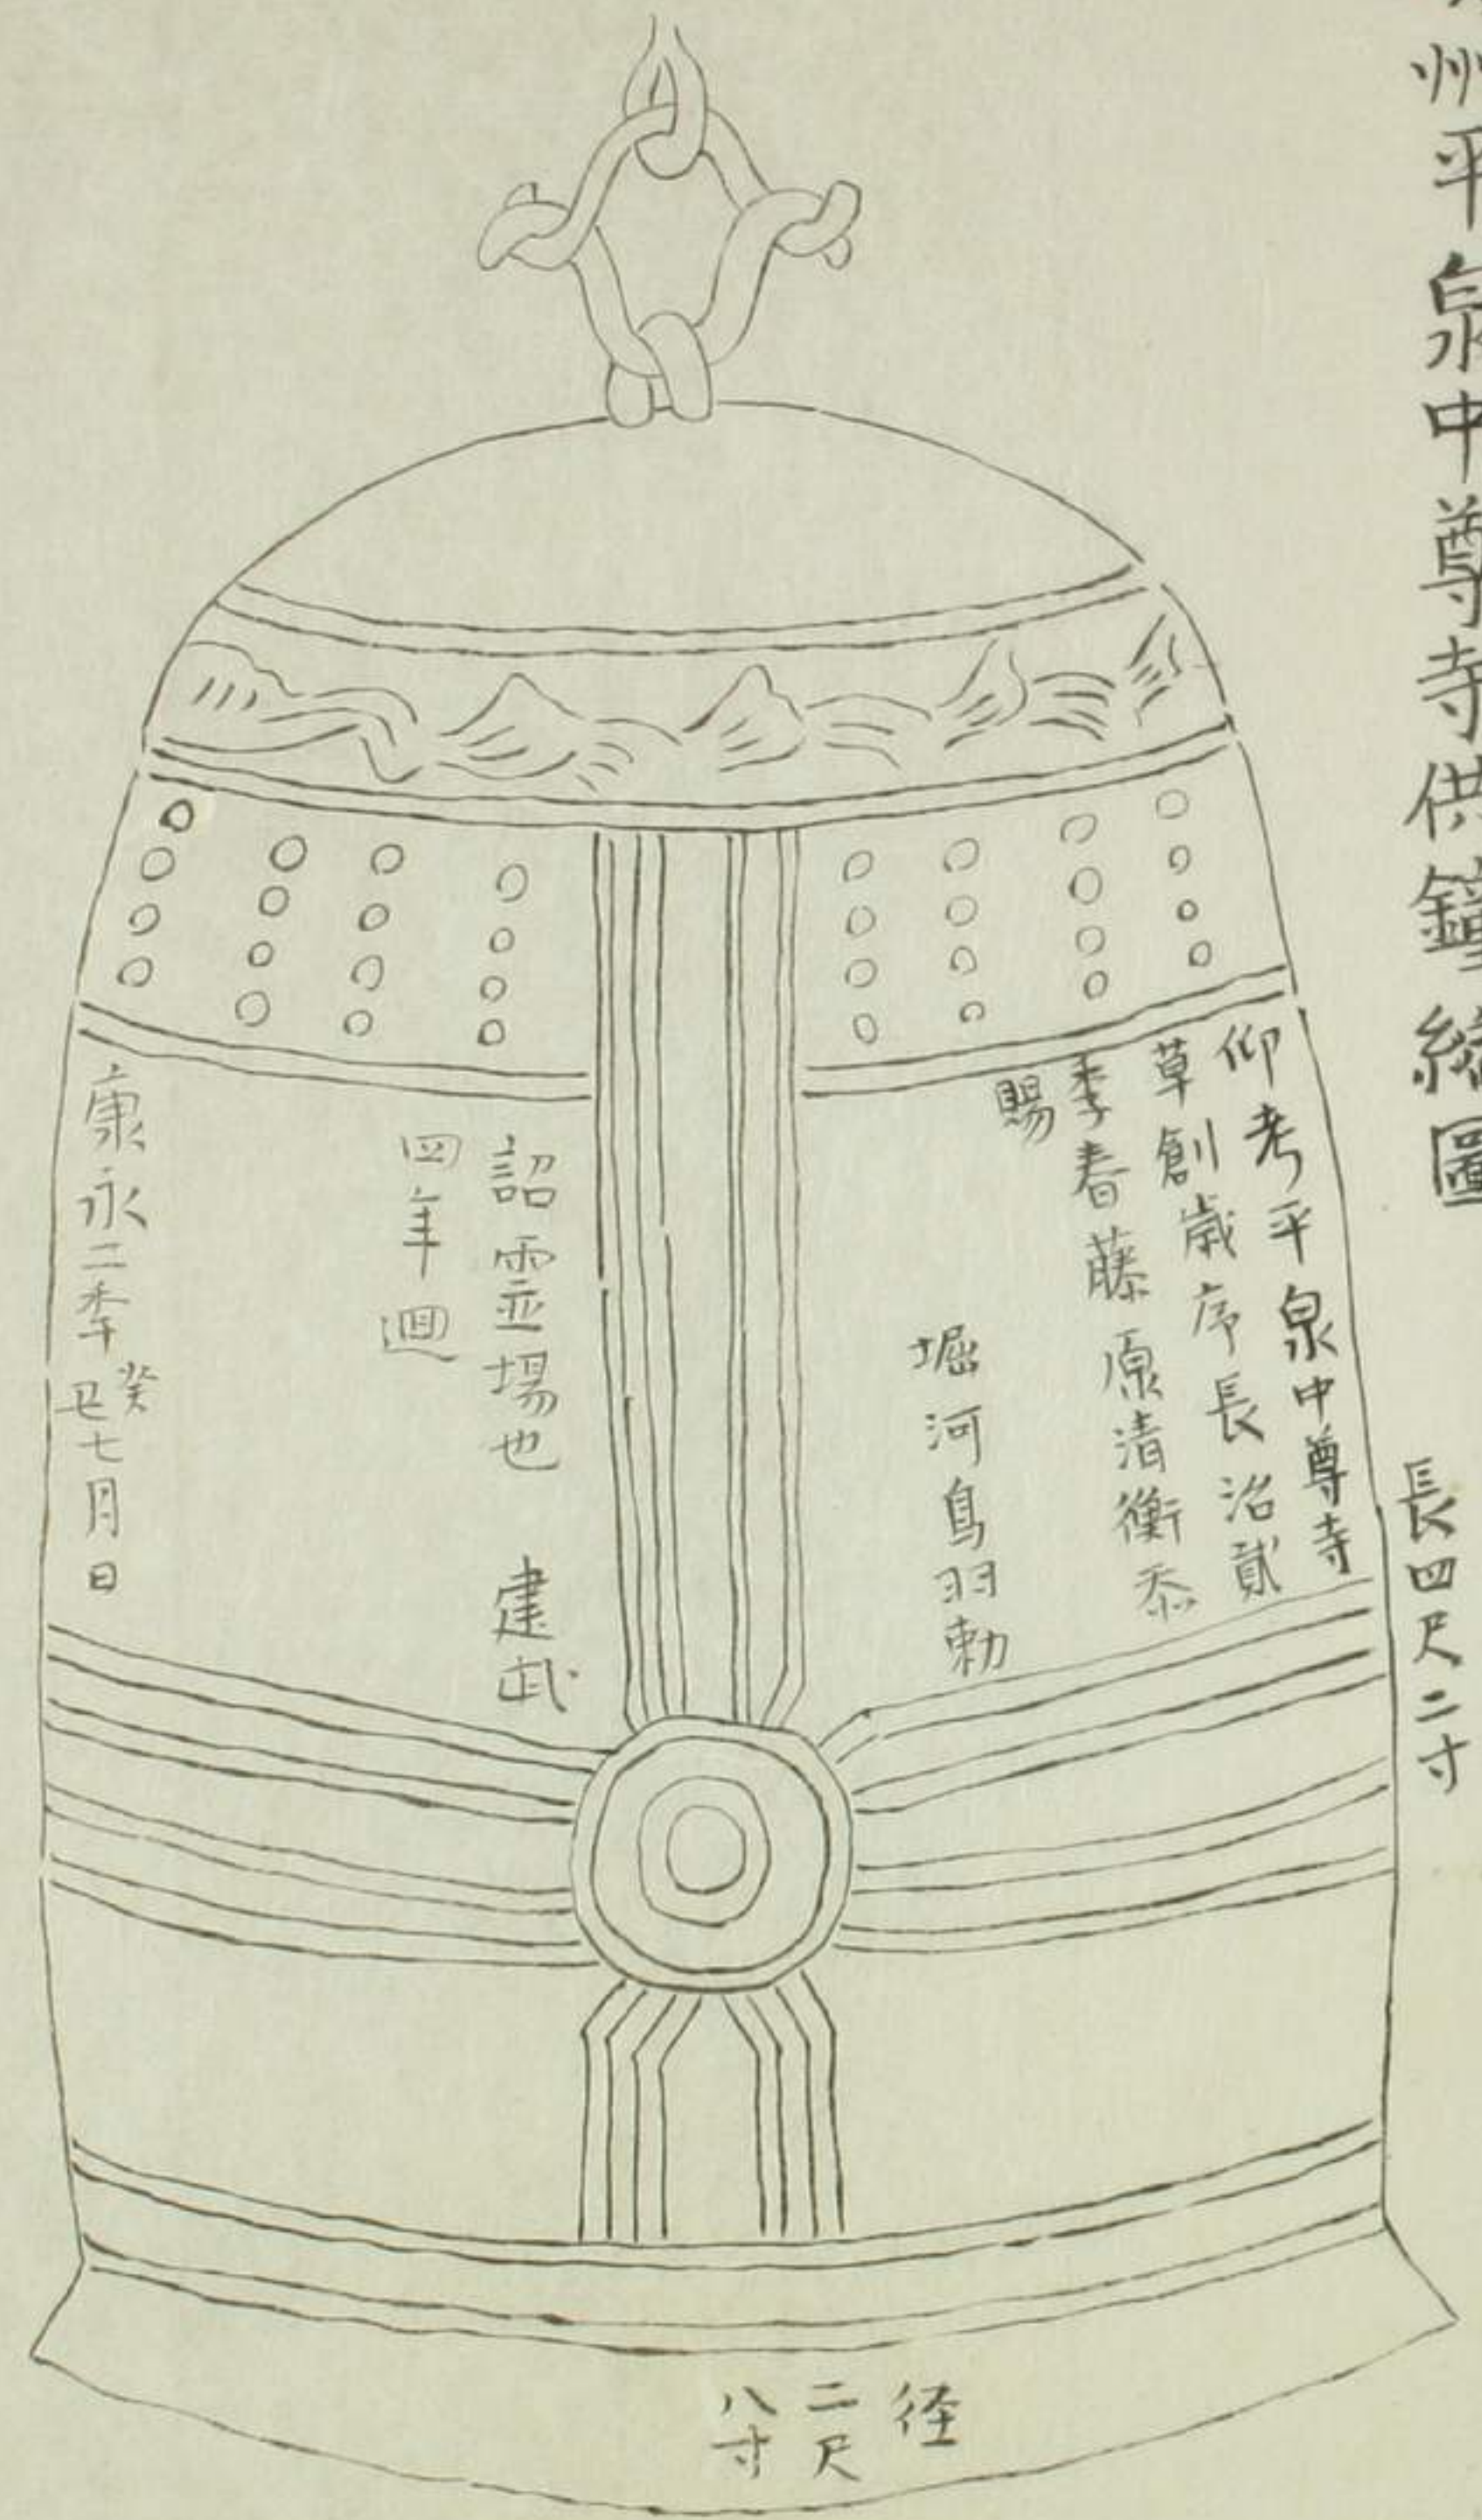 州平泉中尊寺供鐘絵圖
長四尺二寸
仰考平泉中尊寺
草創歳序長治貳
季春藤原清衡忝
賜
堀河鳥羽勅
詔霊場也 建武
四年廻
康永二季癸丑七月日
径二尺八寸